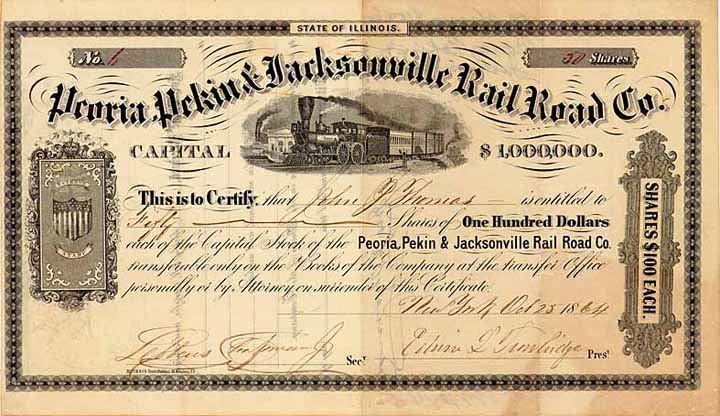 STATE OF ILLINOIS.
No. 6
50 Shares
Peoria, Pekin & Jacksonville Rail Road Co.
CAPITAL $1,000,000.
This is to Certify, that John P Thomas is entitled to
Fifty Shares of One Hundred Dollars
each of the Capital Stock of the Peoria, Pekin & Jacksonville Rail Road Co.
transferable only on the Books of the Company at the transfer Office
personally or by Attorney on surrender of this Certificate.
New York Oct 25 1864
Secy.
Pres.
SHARES $100 EACH.